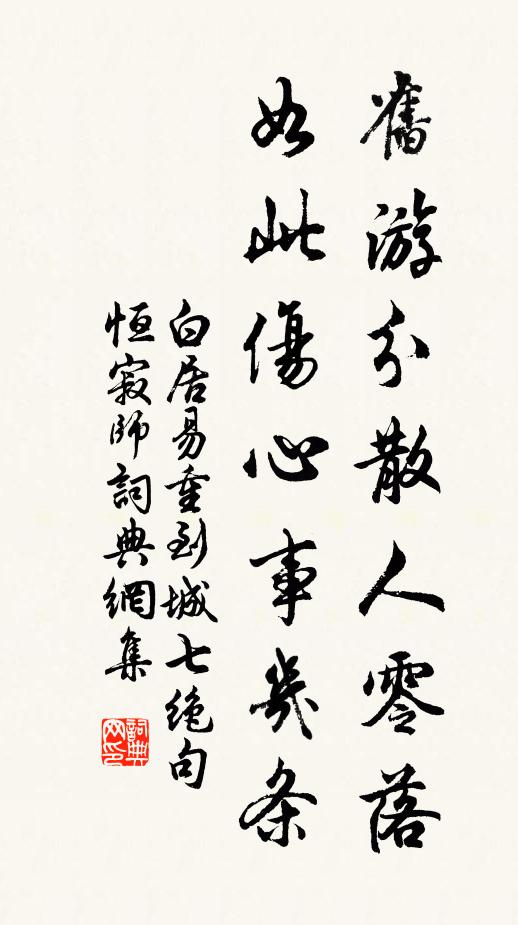 舊游分散人零落
如此傷心事幾条
白居易重到城七绝句
恒寂師詞典網集
詞典網印